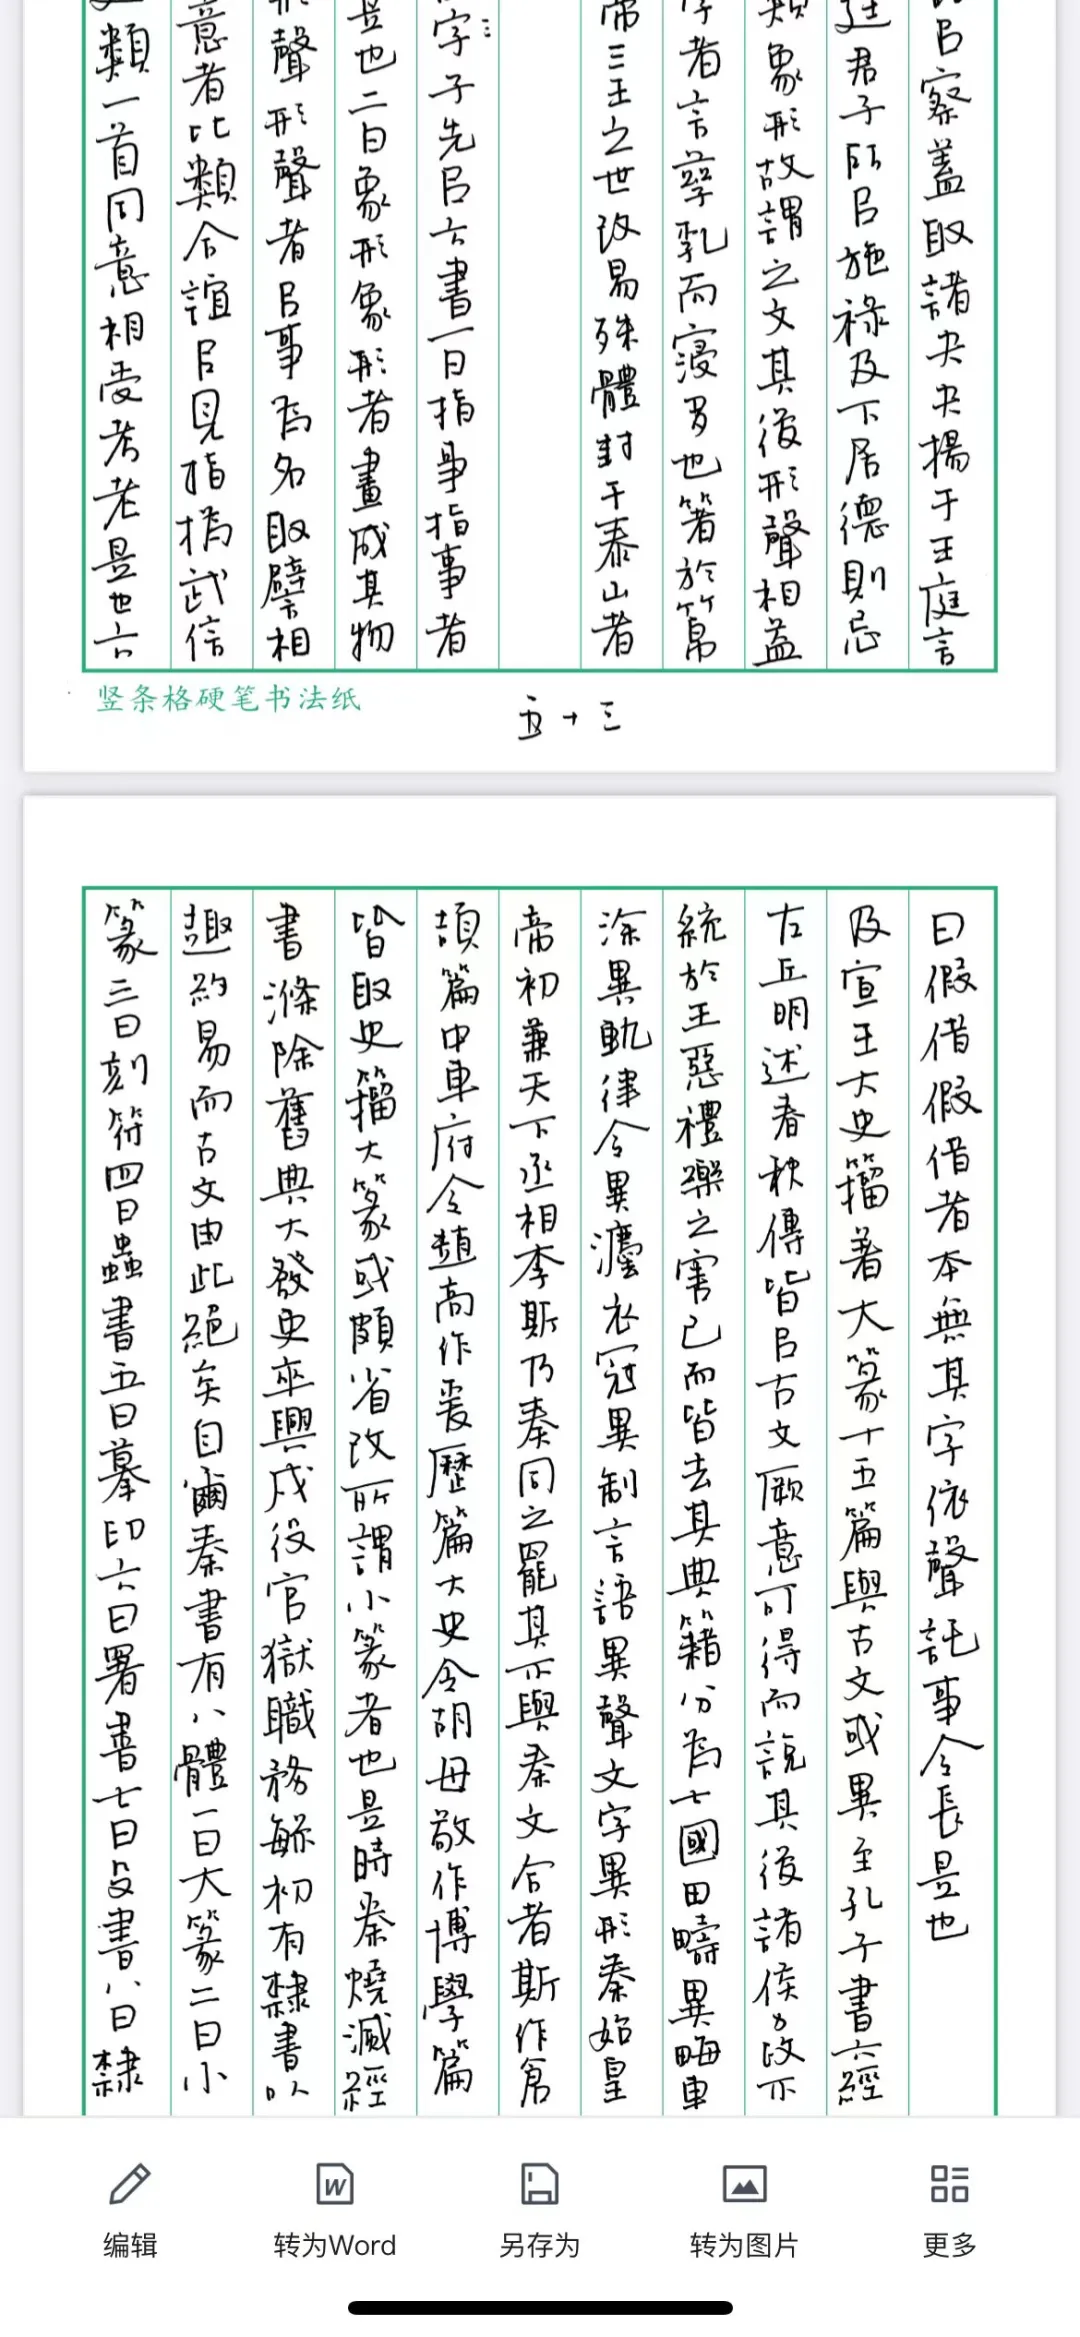 㠯察蓋取諸夬夬揚于王庭言
廷君子所㠯施祿及下居德則忌
類象形故謂之文其後形聲相益
字者言孳乳而寖多也箸於竹帛
帝三王之世改易殊體封于泰山者
字子先㠯六書一曰指事指事者
是也二曰象形象形者畫成其物
形聲形聲者㠯事為名取譬相
意者比類合誼㠯見指撝武信
類一首同意相受考老是也六
竖条格硬笔书法纸
五十三
曰假借假借者本無其字依聲託事令長是也
及宣王大史籀著大篆十五篇與古文或異至孔子書六經
左丘明述春秋傳皆㠯古文厥意可得而說其後諸侯力政不
統於王惡禮樂之害己而皆去其典籍分為七國田疇異畮車
涂異軌律令異灋衣冠異制言語異聲文字異形秦始皇
帝初兼天下丞相李斯乃奏同之罷其不與秦文合者斯作倉
頡篇中車府令趙高作爰歷篇大史令胡毋敬作博學篇
皆取史籀大篆或頗省改所謂小篆者也是時秦燒滅經
書滌除舊典大發吏卒興戍役官獄職務緐初有隸書以
趣約易而古文由此絕矣自爾秦書有八體一曰大篆二曰小
篆三曰刻符四曰蟲書五曰摹印六曰署書七曰殳書八曰隸
编辑
转为Word
另存为
转为图片
更多